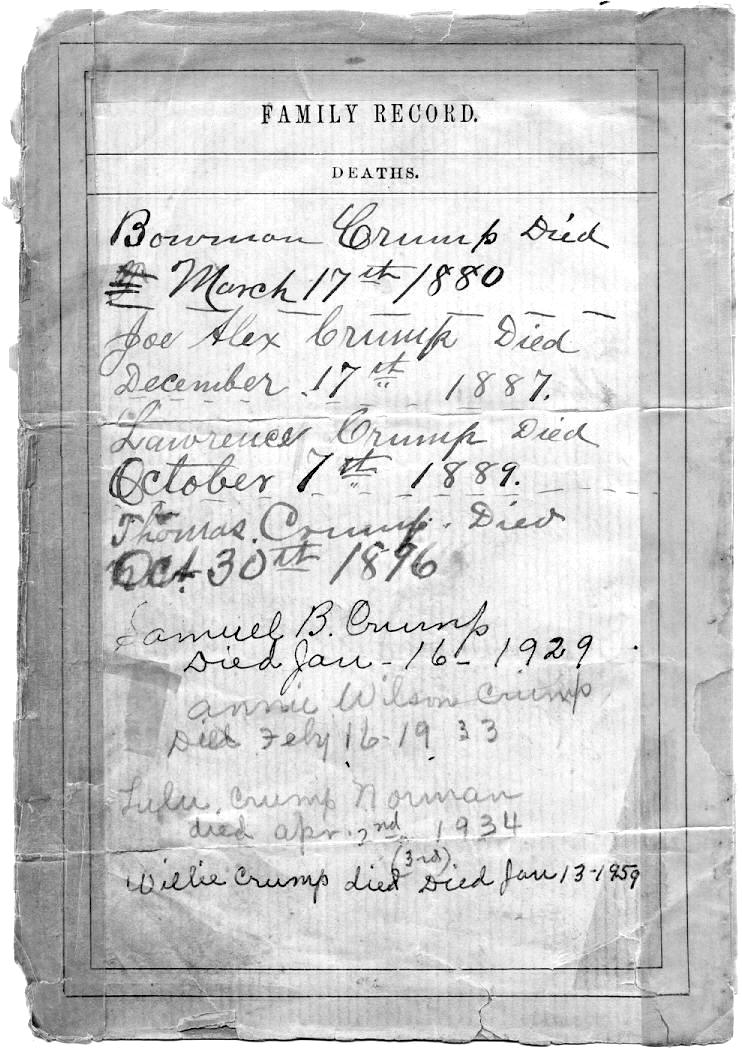 FAMILY RECORD.
DEATHS.
Bowman Crump Died
March 17th 1880
Joe Alex Crump Died
December 17th 1887.
Lawrence Crump Died
October 7th 1889.
Thomas Crump. Died
Oct 30th 1896
Samuel B. Crump
Died Jan - 16 - 1929
Annie Wilson Crump
Died Feby 16-19 33
Lulu Crump Norman
died apr. 2nd 1934
(3rd).
Willie Crump died Died Jan 13-1959